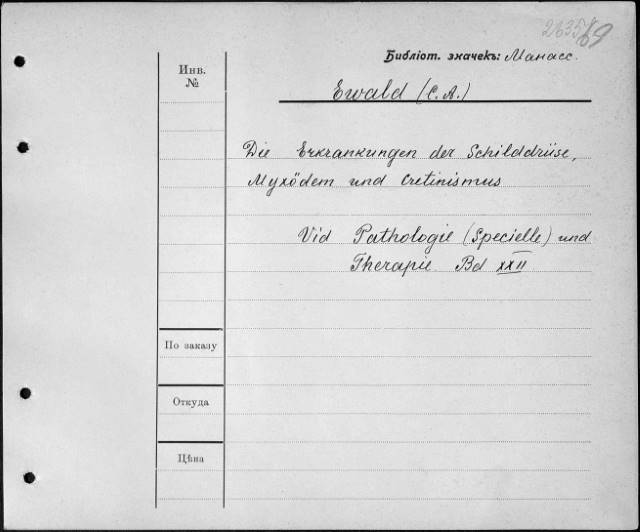 Библіот. значекъ: Манасс.
Инв.
№
Ewald (C. A.)
Die Erkrankungen der Schilddrüse,
Myxödem und Cretinismus
Vid Pathologie (Specielle) und
Therapie. Bd XXII
По заказу
Откуда
Цѣна